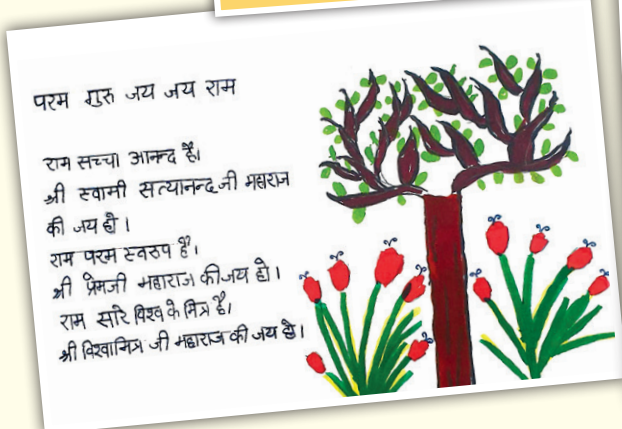 परम गुरु जय जय राम
राम सच्चा आनन्द है।
श्री स्वामी सत्यानन्द जी महाराज
की जय हो।
राम परम स्वरुप है।
श्री प्रेमजी महाराज की जय हो।
राम सारे विश्व के मित्र है।
श्री विश्वामित्र जी महाराज की जय हो।